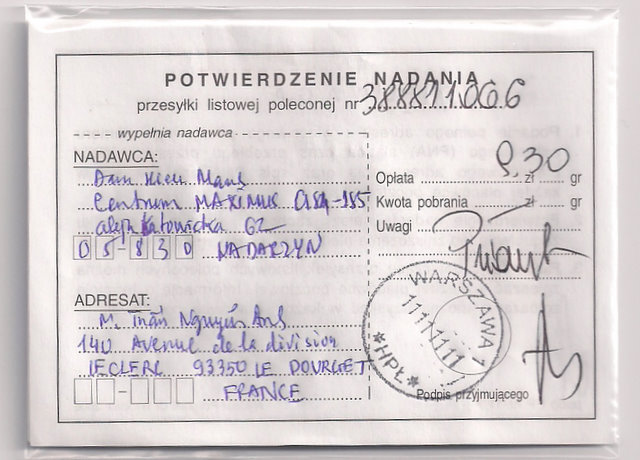 POTWIERDZENIE NADANIA
przesyłki listowej poleconej nr 388811.006
wypełnia nadawca
NADAWCA:
Centrum MAXIMUS
aleja Katowicka 62
05-830 NADARZYN
ADRESAT:
M. Trần Nguyên Anh
140 Avenue de la division
LECLERC 93350 LE BOURGET
FRANCE
Opłata 9.30 zł gr
Kwota pobrania zł gr
Uwagi
Priorytet
WARSZAWA 1
11111111
*HPŁ*
Podpis przyjmującego